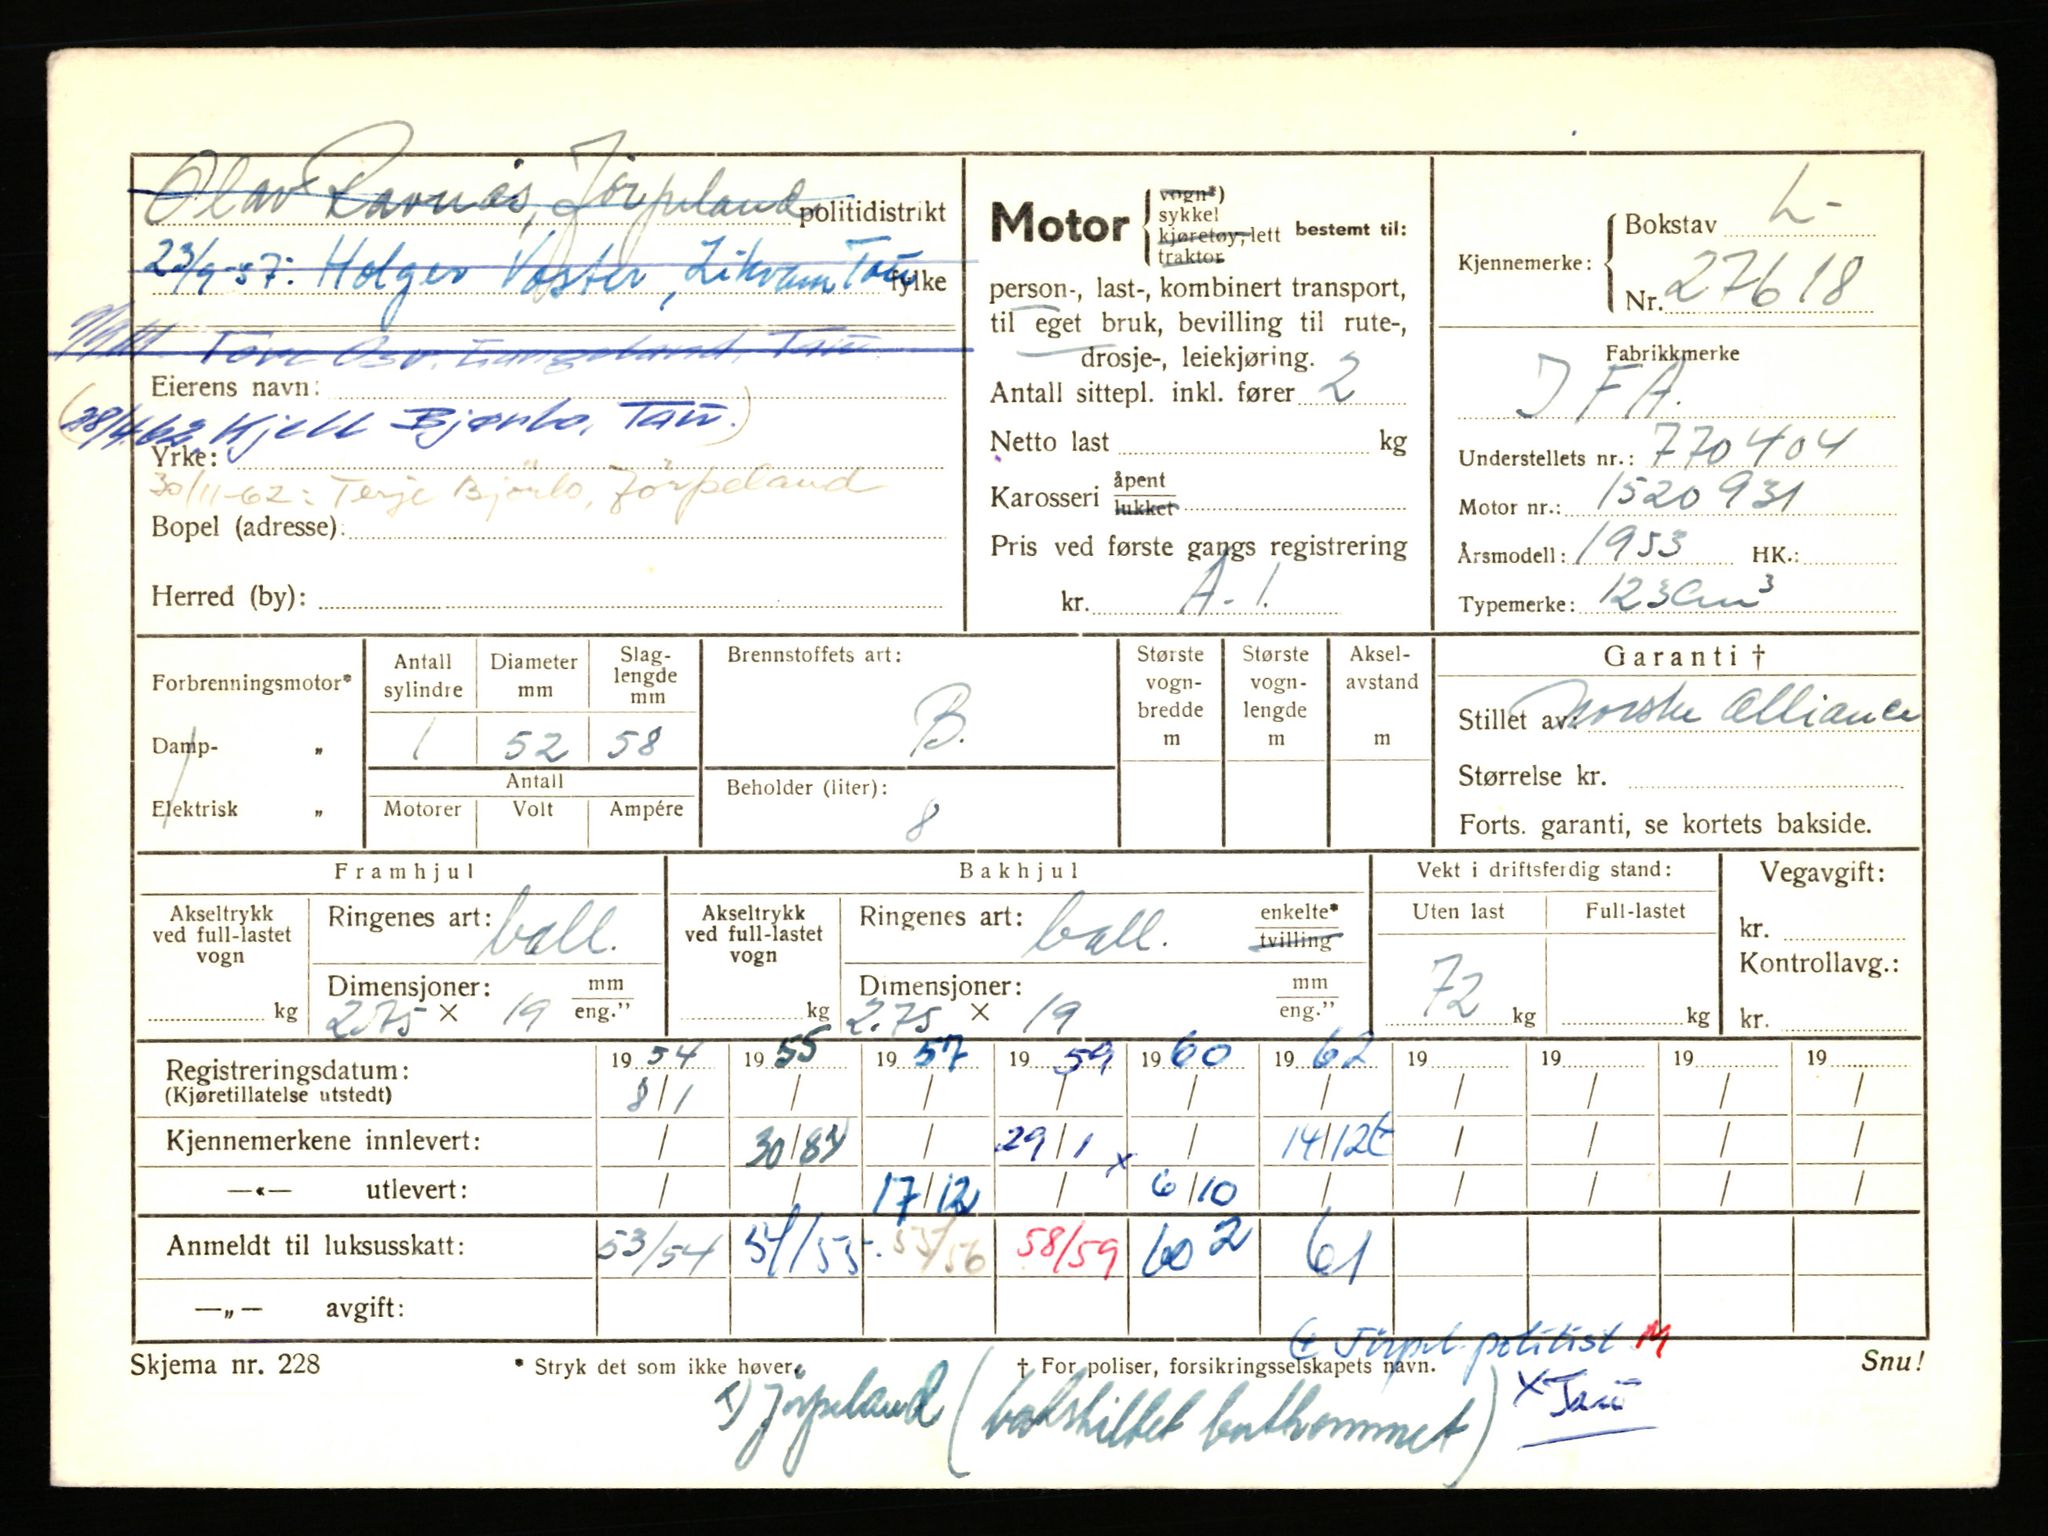 Olav Ravnås, Jørpeland politidistrikt
23/9-57: Holger Voster, Tau fylke
Tau.
Eierens navn:
(28/4.62, Kjell Bjørlo, Tau.)
Yrke:
30/11-62: Terje Bjørlo, Jørpeland
Bopel (adresse):
Herred (by):
Motor { vogn*) sykkel kjøretøy, lett traktor bestemt til:
person-, last-, kombinert transport,
til eget bruk, bevilling til rute-,
drosje-, leiekjøring.
Antall sittepl. inkl. fører 2
Netto last kg
Karosseri åpent lukket
Pris ved første gangs registrering
kr. A-1.
Kjennemerke: { Bokstav L-
Nr. 27618
Fabrikkmerke
IFA.
Understellets nr.: 770404
Motor nr.: 1520931
Årsmodell: 1953 HK.:
Typemerke: 123 cm³
Forbrenningsmotor*
Damp- „
Elektrisk „
Antall sylindre
1
Diameter mm
52
Slag-lengde mm
58
Antall
Motorer Volt Ampére
Brennstoffets art:
B.
Beholder (liter):
8
Største vogn-bredde m
Største vogn-lengde m
Aksel-avstand m
Garanti †
Stillet av: Norske Alliance
Størrelse kr.
Forts. garanti, se kortets bakside.
Framhjul
Akseltrykk ved full-lastet vogn
kg
Ringenes art: ball.
Dimensjoner: mm eng."
2.75 × 19
Bakhjul
Akseltrykk ved full-lastet vogn
kg
Ringenes art: ball. enkelte* tvilling
Dimensjoner: mm eng."
2.75 × 19
Vekt i driftsferdig stand:
Uten last Full-lastet
72 kg kg
Vegavgift:
kr.
Kontrollavg.:
kr.
Registreringsdatum: 19 54 19 55 19 57 19 59 19 60 19 62 19 19 19 19
(Kjøretillatelse utstedt) 8/1 / / / / / / / / /
Kjennemerkene innlevert: / 30/8 / 29/1 x / 14/12 / / / /
—«— utlevert: / / 17/12 / 6/10 / / / / /
Anmeldt til luksusskatt: 53/54 54/55. 55/56 58/59 60 2 61
—„— avgift:
Skjema nr. 228 * Stryk det som ikke høver. † For poliser, forsikringsselskapets navn. Snu!
Jørpel. politist M
x) Jørpeland (bakskiltet bortkommet) x Tau